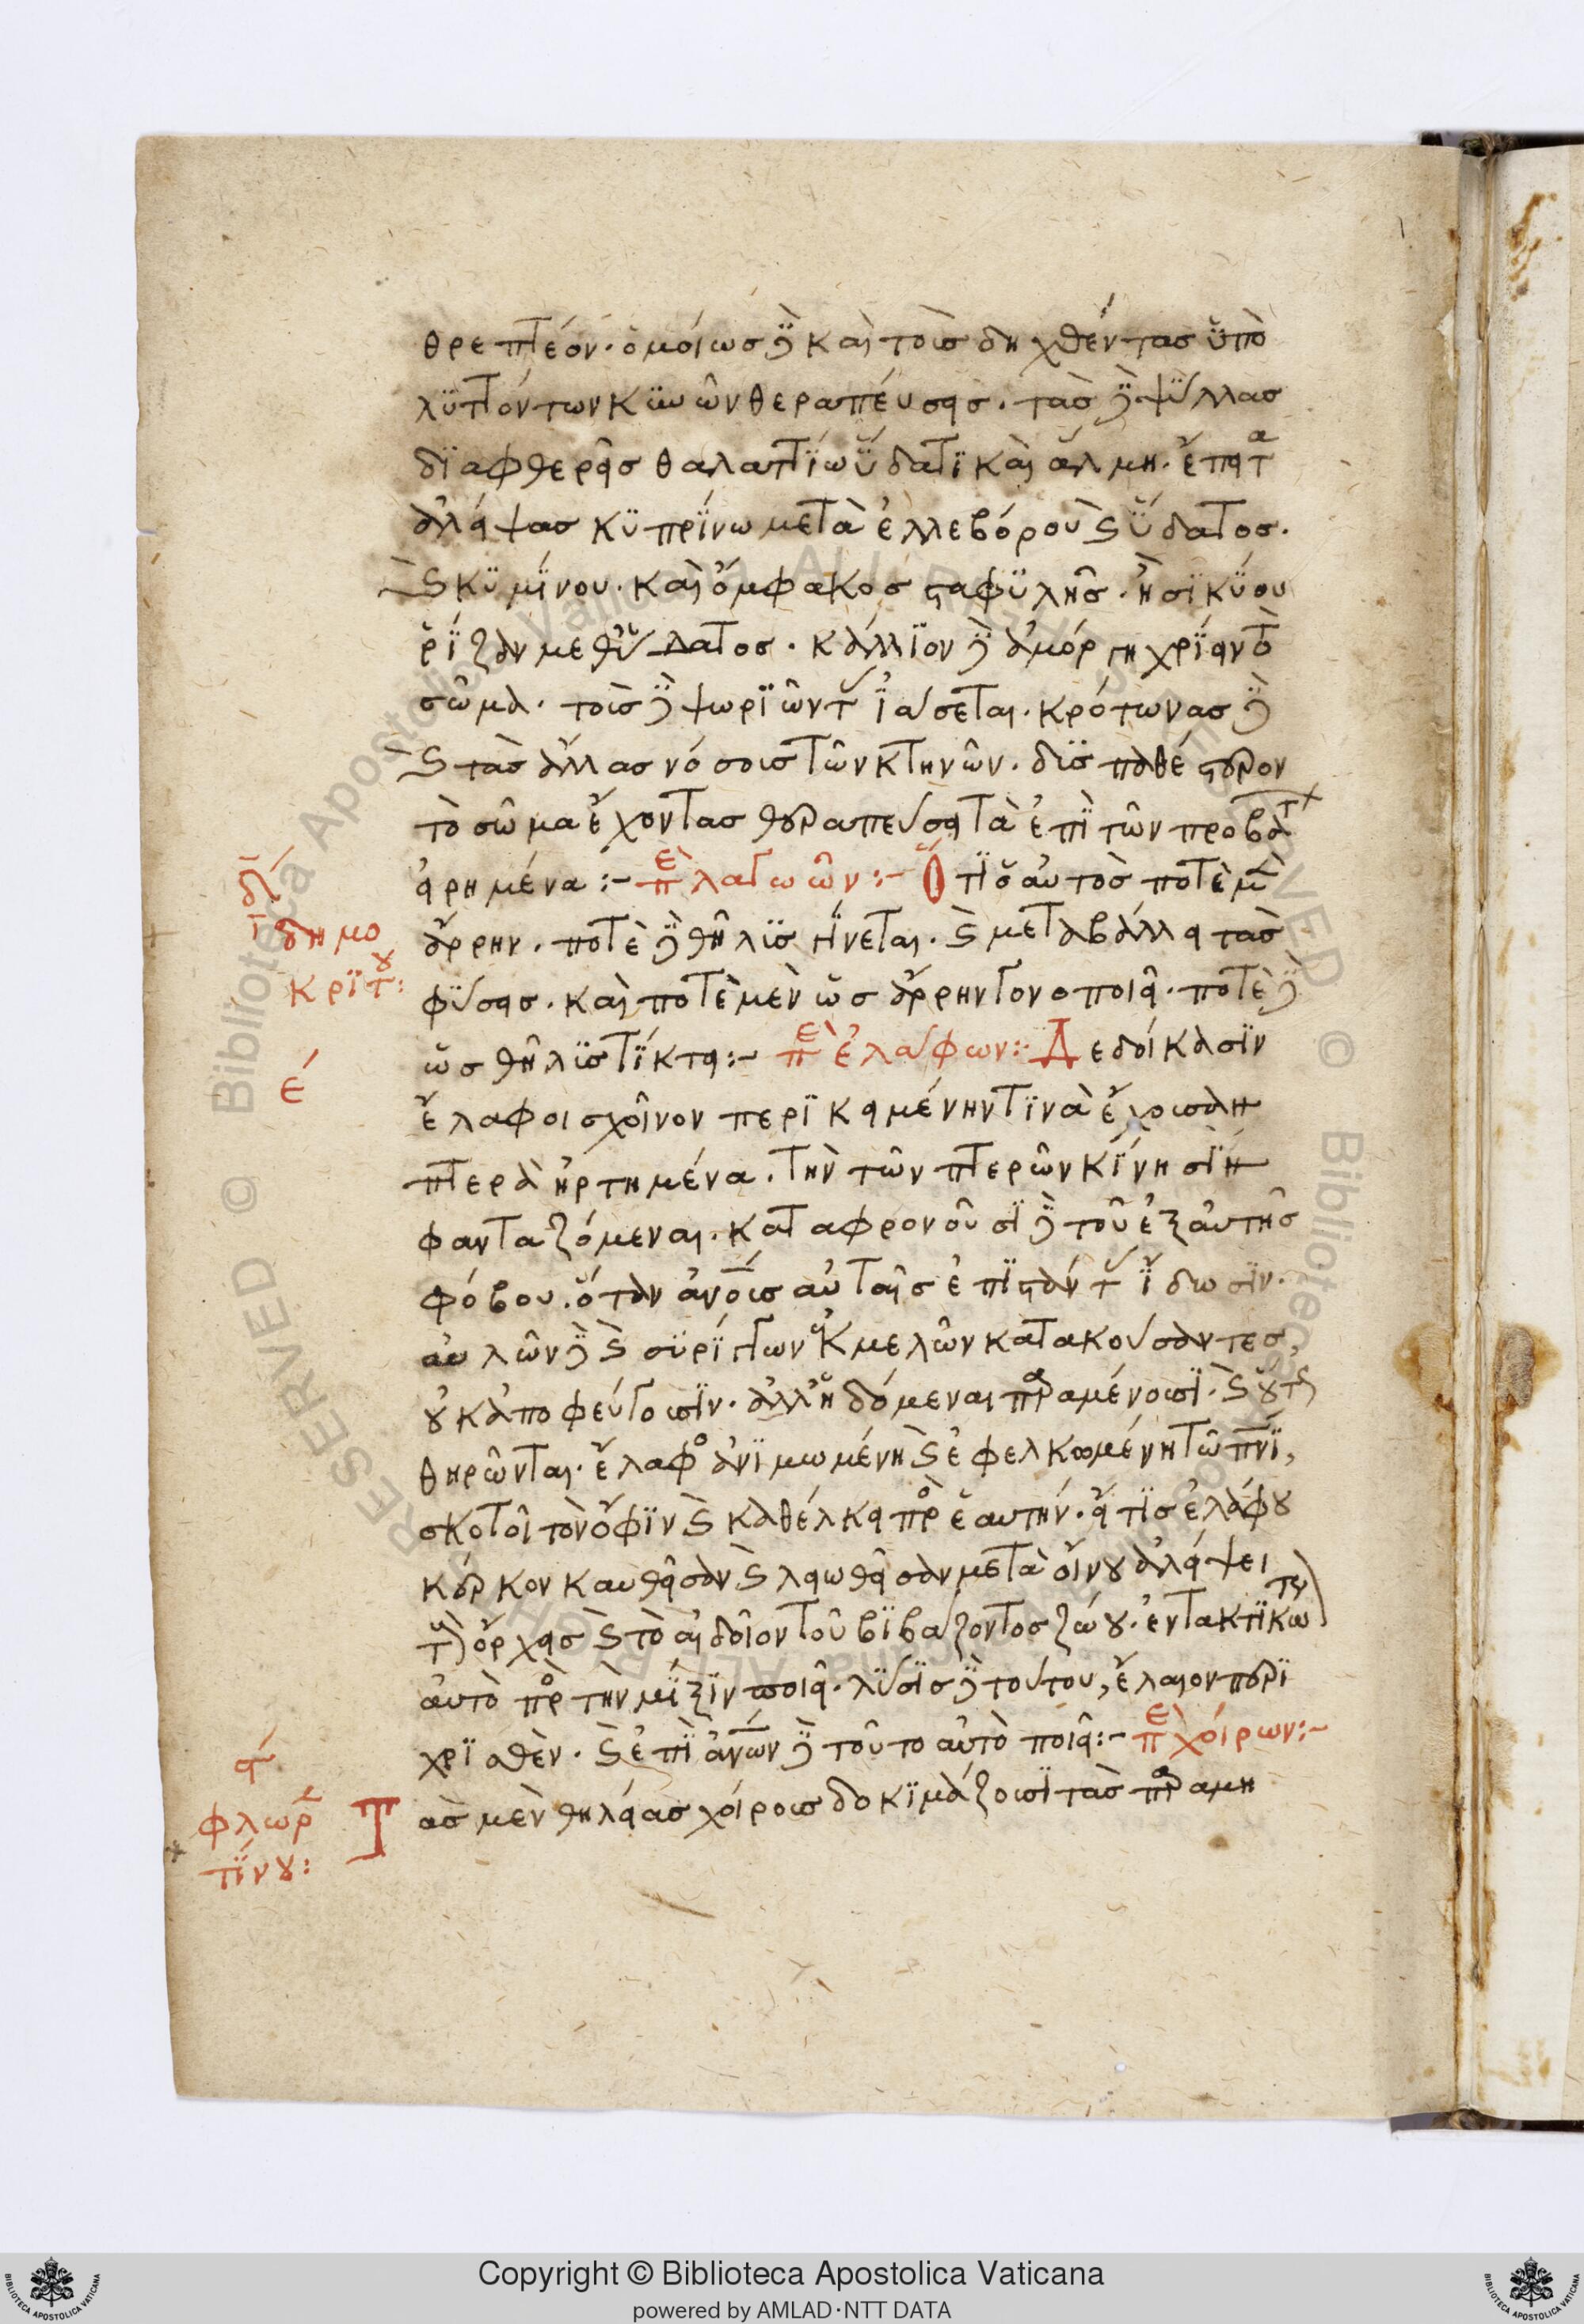 θρεπτέον· ὁμοίως δὲ καὶ τοὺς δηχθέντας ὑπὸ
λυττόντων κυνῶν θεραπεύσεις. τὰς δὲ ψύλλας
διαφθερεῖς θαλαττίω ὕδατι καὶ ἅλμη. ἔπειτα
ἀλείψας κυπρίνω μετὰ ἐλλεβόρου καὶ ὕδατος.
καὶ κυμίνου. καὶ ὄμφακος σταφυλῆς. ἢ σικύου
ῥίζαν μεθ' ὕδατος. κάλλιον δὲ ἀμόργη χρίειν τὸ
σῶμα. τοὺς δὲ ψωριῶντ ἰάσεται. κρότωνας δὲ
καὶ τὰς ἄλλας νόσους τῶν κτηνῶν. δυσπαθέστερον
τὸ σῶμα ἔχοντας θεραπεύσει τὰ ἐπὶ τῶν προβάτ
εἰρημένα :- πε λαγωῶν :- Ὅτι ὁ αὐτὸς ποτὲ μὲν
ἄρρην. ποτὲ δὲ θῆλυς γίνεται. καὶ μεταβάλλει τὰς
φύσεις. καὶ ποτὲ μὲν ὡς ἄρρην γονοποιεῖ. ποτὲ δὲ
ὡς θῆλυς τίκτει :- πε ἐλάφων :- Δεδοίκασιν
ἔλαφοι σχοῖνον περικειμένην τινὰ ἔχουσαν
πτερὰ ἠρτημένα. τὴν τῶν πτερῶν κίνησιν
φανταζόμεναι. καταφρονοῦσι δὲ τοῦ ἐξ αὐτῆς
φόβου. ὅταν ἀνοις αὐταῖς ἐπιστάντ ἴδωσιν.
αὐλῶν δὲ καὶ συρίγγων καὶ μελῶν κατακούσαντες,
οὐκ ἀποφεύγουσιν. ἀλλ' ἡδόμεναι παραμένουσι. καὶ οὕτως
θηρῶνται. ἔλαφος ἀνιμωμένη καὶ ἐφελκομένη τῶ πνι,
σκοτοῖ τὸν ὄφιν καὶ καθέλκει πρὸς ἑαυτήν. εἴ τις ἐλάφου
κέρκον καυθεῖσαν καὶ λειωθεῖσαν μετὰ οἴνου ἀλείψει
τοὺς ὄρχεις καὶ τὸ αἰδοῖον τοῦ βιβάζοντος ζώου. ἐντακτικώτερ
αὐτὸ πρὸς τὴν μίξιν ποιεῖ. λύσις δὲ τούτου, ἔλαιον περι
χρισθὲν. καὶ ἐπὶ ἀνων δὲ τοῦτο αὐτὸ ποιεῖ :- πε χοίρων :-
Τὰς μὲν θηλείας χοίρους δοκιμάζουσι τὰς παραμη
δ
δημο
κρίτου :
ε
ϛ
φλωρε
τίνου :
Copyright © Biblioteca Apostolica Vaticana
powered by AMLAD·NTT DATA